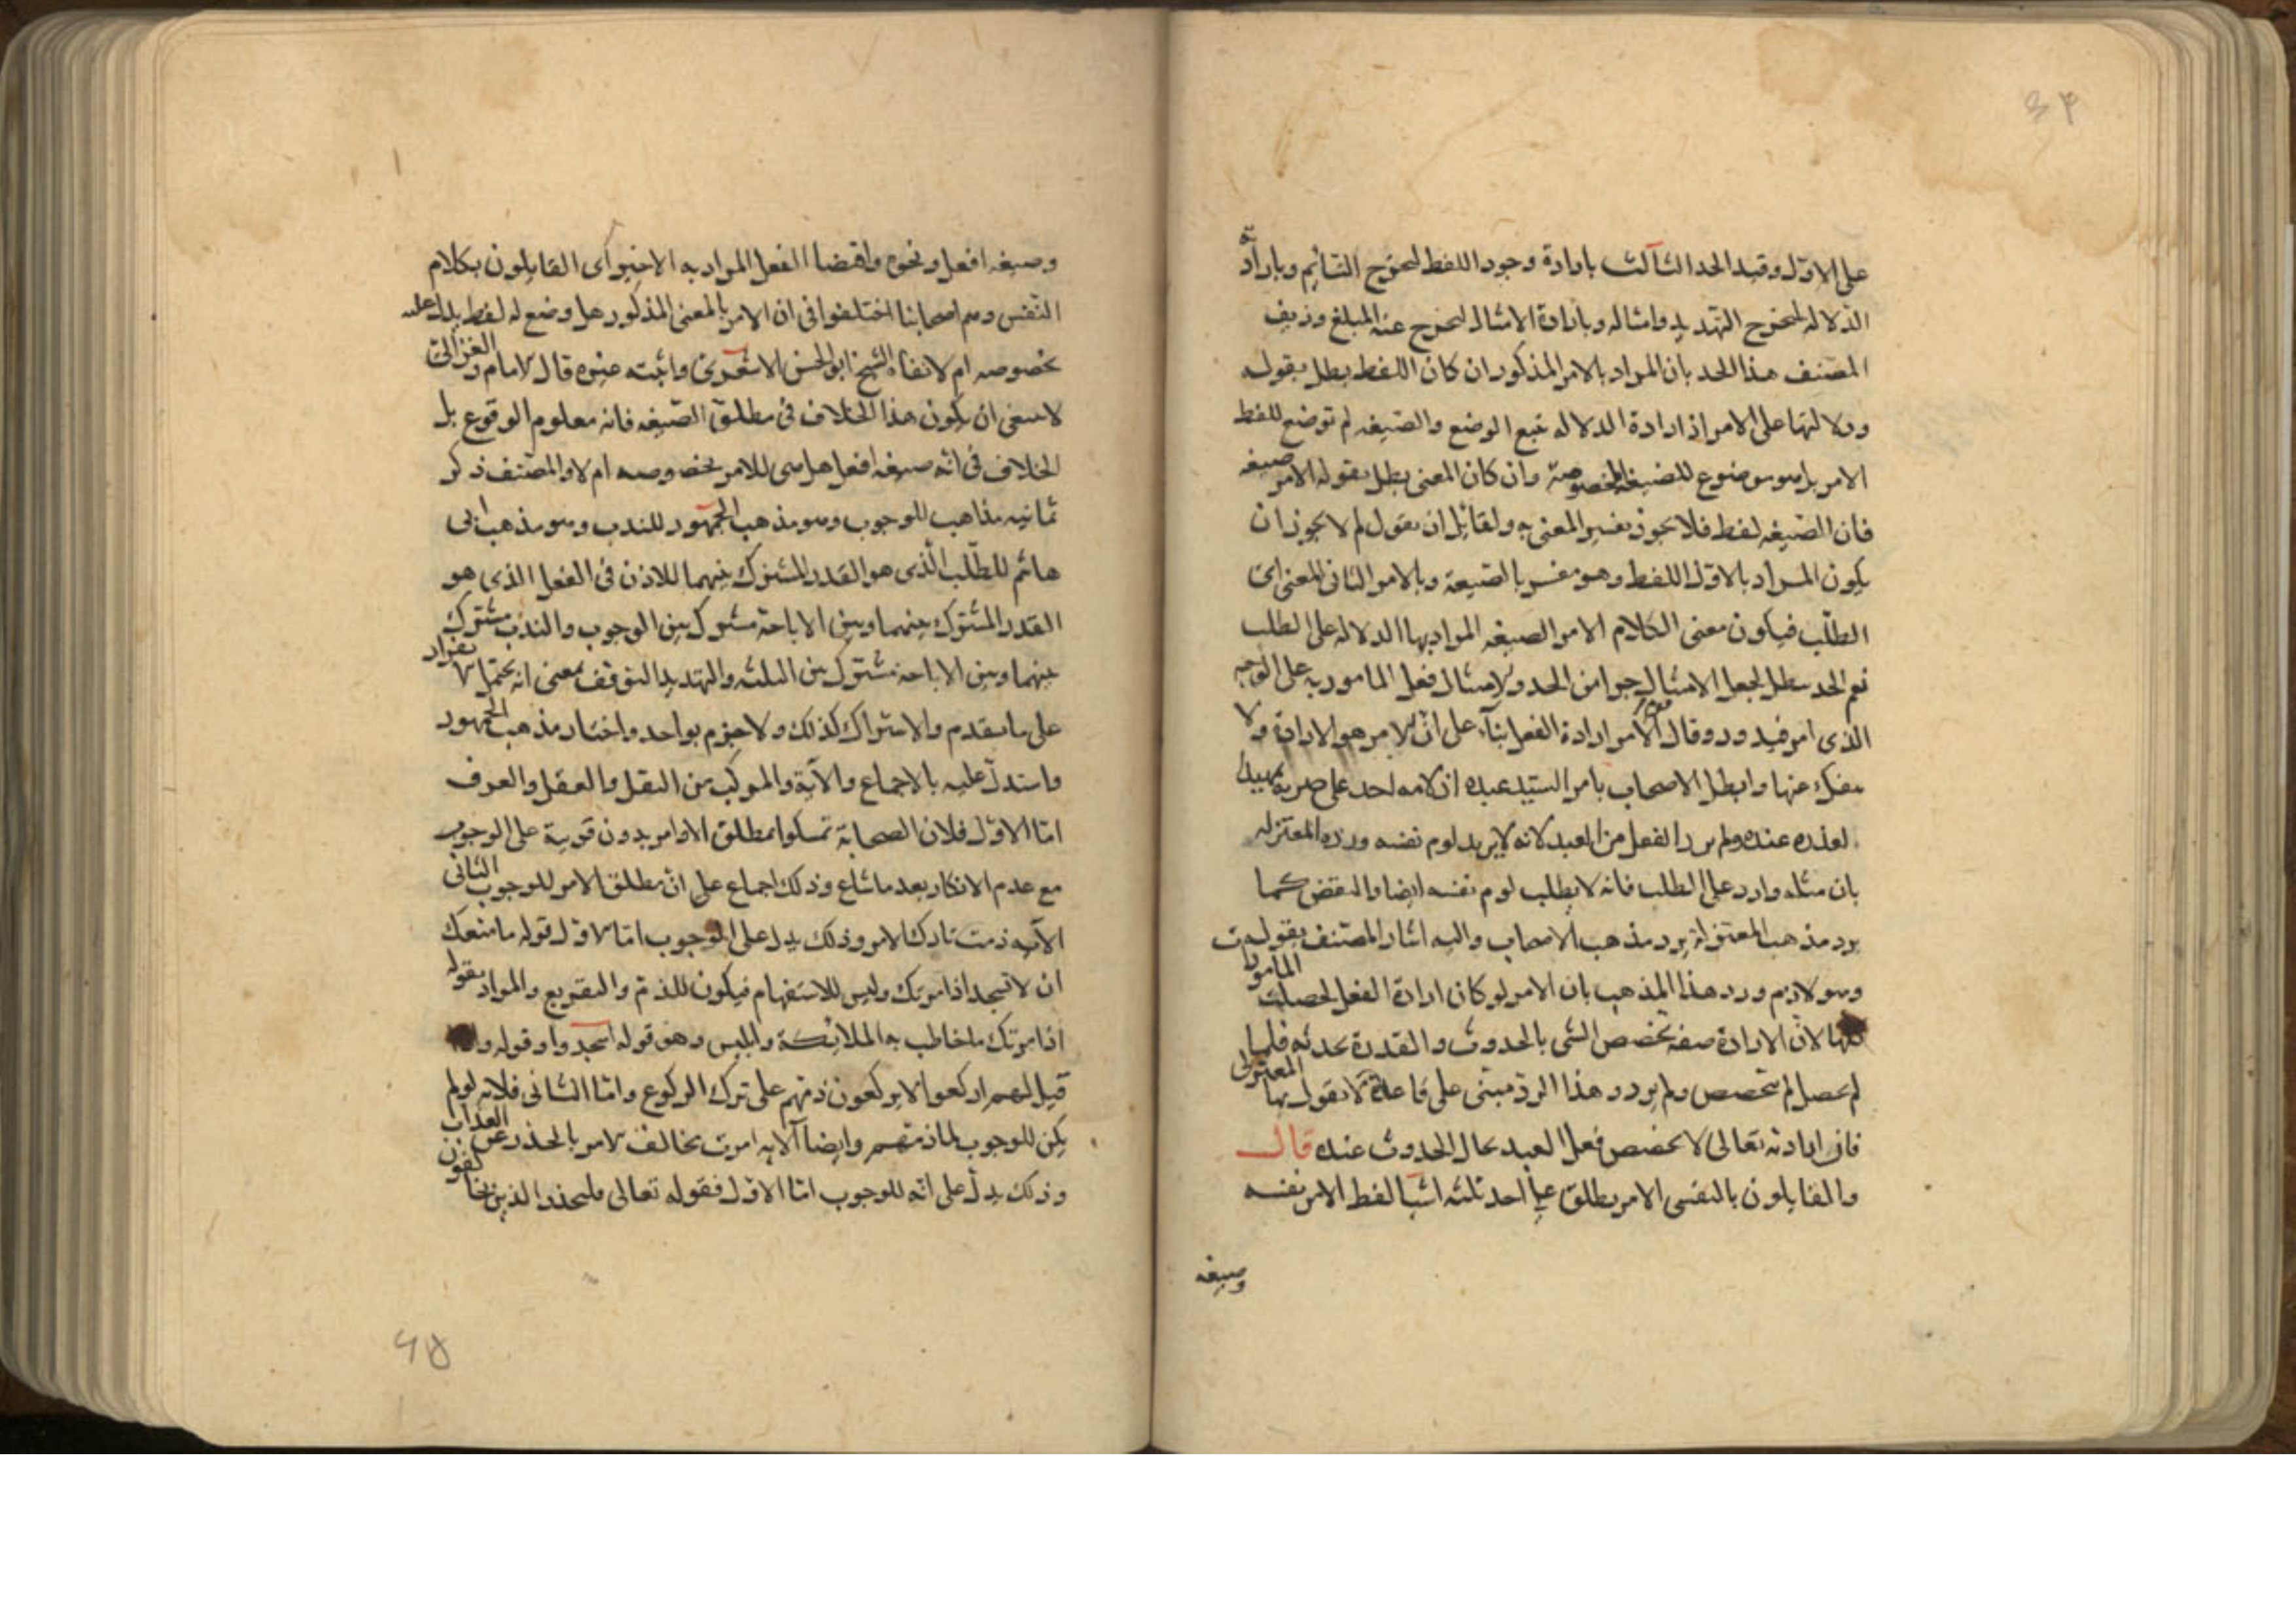 على الاول وقيد الحد الثالث بارادة وجود اللفظ ليخرج النائم وبارادة
الدلالة ليخرج التهديد وامثاله وبارادة الامتثال ليخرج عنه المبلغ وزيف
المصنف هذا الحد بان المراد بالامر المذكور ان كان اللفظ بطل بقوله
ودلالتها على الامر اذ ارادة الدلالة تتبع الوضع والصيغه لم توضع للفظ
الامر بل هو موضوع للصيغة المخصوصة وان كان المعنى بطل بقوله الامر صيغه
فان الصيغه لفظ فلا يجوز تفسير المعنى به ولقائل ان يقول لم لا يجوز ان
يكون المراد بالاول اللفظ وهو مفسر بالصيغة وبالامر الثانى المعنى اى
الطلب فيكون معنى الكلام الامر الصيغه المراد بها الدلالة على الطلب
نعم الحد يبطل لجعل الامتثال جزا من الحد والامتثال فعل المامور به على الوجه
الذى امر فيدور وقال قوم الامر ارادة الفعل بناء على ان الامر هو الارادة ولا
ينفك عنها وابطل الاصحاب بامر السيد عبده اذ لامه احد على ضربه تمهيدا
لعذره عنده ولم يرد الفعل من العبد لانه لا يريد لوم نفسه ورده المعتزله
بان مثله وارد على الطلب فانه لا يطلب لوم نفسه ايضا والنقض كما
يرد مذهب المعتزلة يرد مذهب الاصحاب واليه اشار المصنف بقوله
وهو لازم ورد هذا المذهب بان الامر لو كان ارادة الفعل لحصلت المامورات
كلها لان الارادة صفه تخصص الشى بالحدوث والقدرة تحدثه فلما
لم يحصل لم يتخصص ولم يرد وهذا الرد مبنى على قاعدة لا يقول بها المعتزلى
فان ارادته تعالى لا تخصص فعل العبد بحال الحدوث عنده قال
والقايلون بالنفسى الامر يطلق على احد ثلثه اشيا لفظ الامر نفسه
وصيغه
وصيغه افعل ونحوه واقتضا الفعل المراد به الاخير اى القايلون بكلام
النفس وهم اصحابنا اختلفوا فى ان الامر بالمعنى المذكور هل وضع له لفظ يدل عليه
بخصوصه ام لا نفاه الشيخ ابو الحسن الاشعرى واثبته غيره قال الامام والغزالى
لا ينبغى ان يكون هذا الخلاف فى مطلق الصيغه فانه معلوم الوقوع بل
الخلاف فى انه صيغه افعل هل هى للامر بخصوصه ام لا والمصنف ذكر
ثمانيه مذاهب للوجوب وهو مذهب الجمهور للندب وهو مذهب ابى
هاشم للطلب الذى هو القدر المشترك بينهما للاذن فى الفعل الذى هو
القدر المشترك بينهما وبين الاباحة مشترك بين الوجوب والندب مشترك
بينهما وبين الاباحة مشترك بين الثلثه والتهديد التوقف بمعنى انه يحتمل الانفراد
على ما تقدم والاشتراك كذلك ولا جزم بواحد واختار مذهب الجمهور
واستدل عليه بالاجماع والآية والمركب من النقل والعقل والعرف
اما الاول فلان الصحابة تمسكوا بمطلق الاوامر بدون قرينة على الوجوب
مع عدم الانكار بعد ما شاع وذلك اجماع على ان مطلق الامر للوجوب الثانى
الآيه ذمت تارك الامر وذلك يدل على الوجوب اما الاول قوله ما منعك
ان لا تسجد اذ امرتك وليس للاستفهام فيكون للذم والتقريع والمراد بقوله
اذ امرتك ما خاطب به الملائكة وابليس وهو قوله اسجدوا وقوله واذا
قيل لهم اركعوا لا يركعون ذمهم على ترك الركوع واما الثانى فلانه لو لم
يكن للوجوب لما ذمهم وايضا الآيه امرت مخالف الامر بالحذر عن العذاب
وذلك يدل على انه للوجوب اما الاول فقوله تعالى فليحذر الذين يخالفون